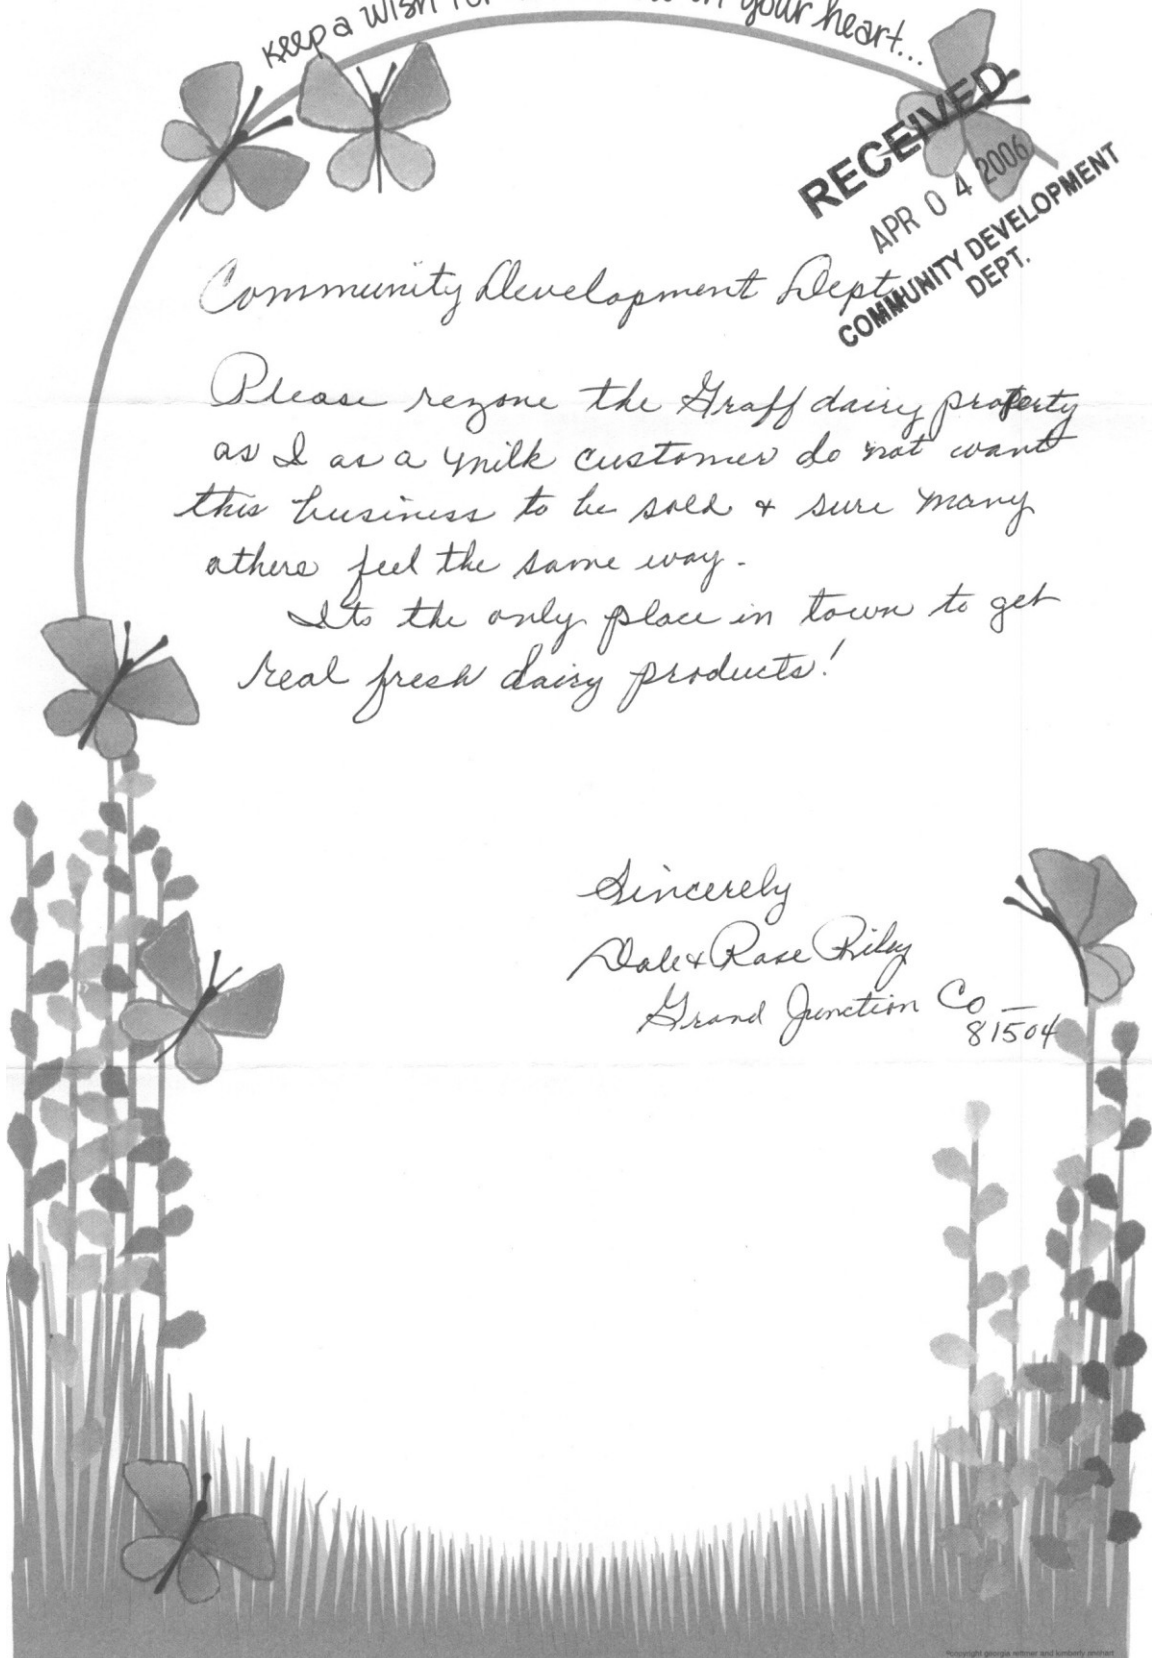 Keep a wish for in your heart...
RECEIVED
APR 04 2006
COMMUNITY DEVELOPMENT
DEPT.
Community Development Dept
Please rezone the Graff dairy property
as I as a milk customer do not want
this business to be sold & sure many
others feel the same way.
Its the only place in town to get
real fresh dairy products!
Sincerely
Dale & Rose Riley
Grand Junction Co —
81504
©copyright georgia wittmer and kimberly